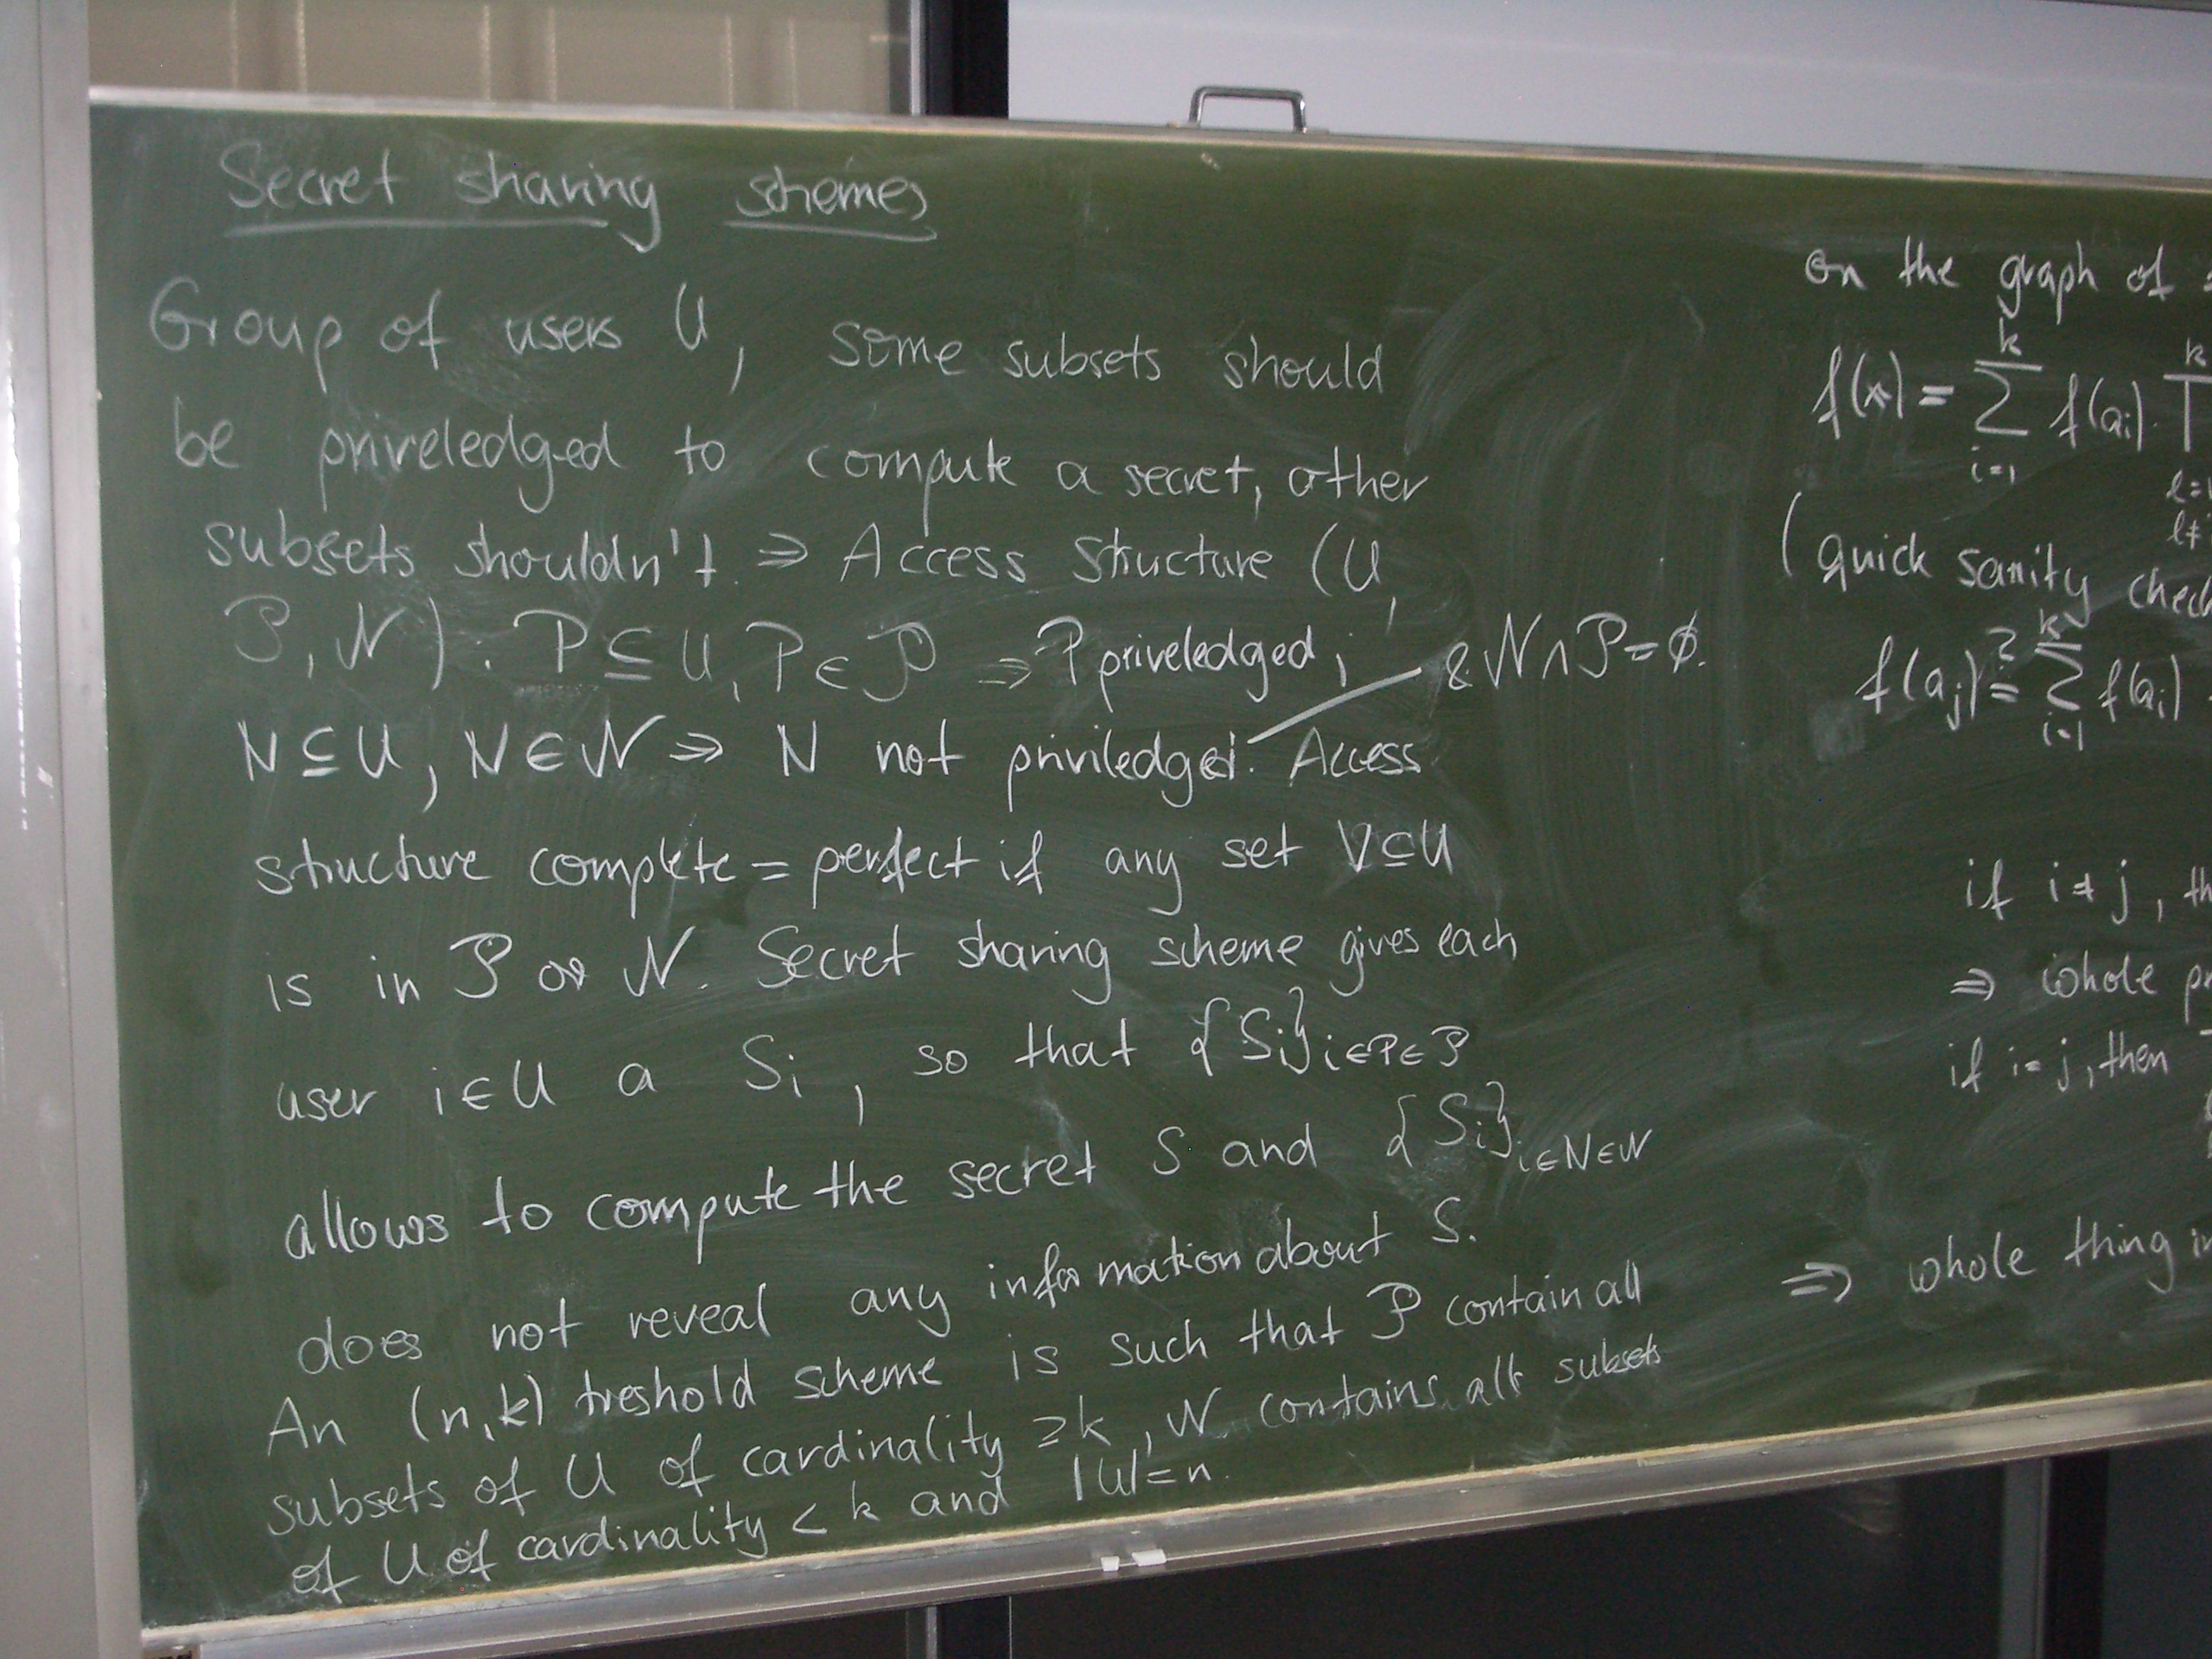 Secret sharing schemes
Group of users U, some subsets should
be priveledged to compute a secret, other
subsets shouldn't. ⇒ Access Structure (U,
𝒫, 𝒩). P ⊆ U, P ∈ 𝒫 ⇒ P priveledged;
& 𝒩 ∩ 𝒫 = ∅.
N ⊆ U, N ∈ 𝒩 ⇒ N not priviledged. Access
structure complete = perfect if any set V ⊆ U
is in 𝒫 or 𝒩. Secret sharing scheme gives each
user i ∈ U a Si, so that {Si}i∈P∈𝒫
allows to compute the secret S and {Si}i∈N∈𝒩
does not reveal any information about S.
An (n,k) treshold scheme is such that 𝒫 contain all
subsets of U of cardinality ≥ k, 𝒩 contains all subsets
of U of cardinality < k and |U| = n.
on the graph of
f(x) = k∑i=1 f(ai) ∏ k
(quick sanity check
f(aj) ?= k∑i=1 f(ai)
if i ≠ j, th
⇒ whole pr
if i = j, then
⇒ whole thing in